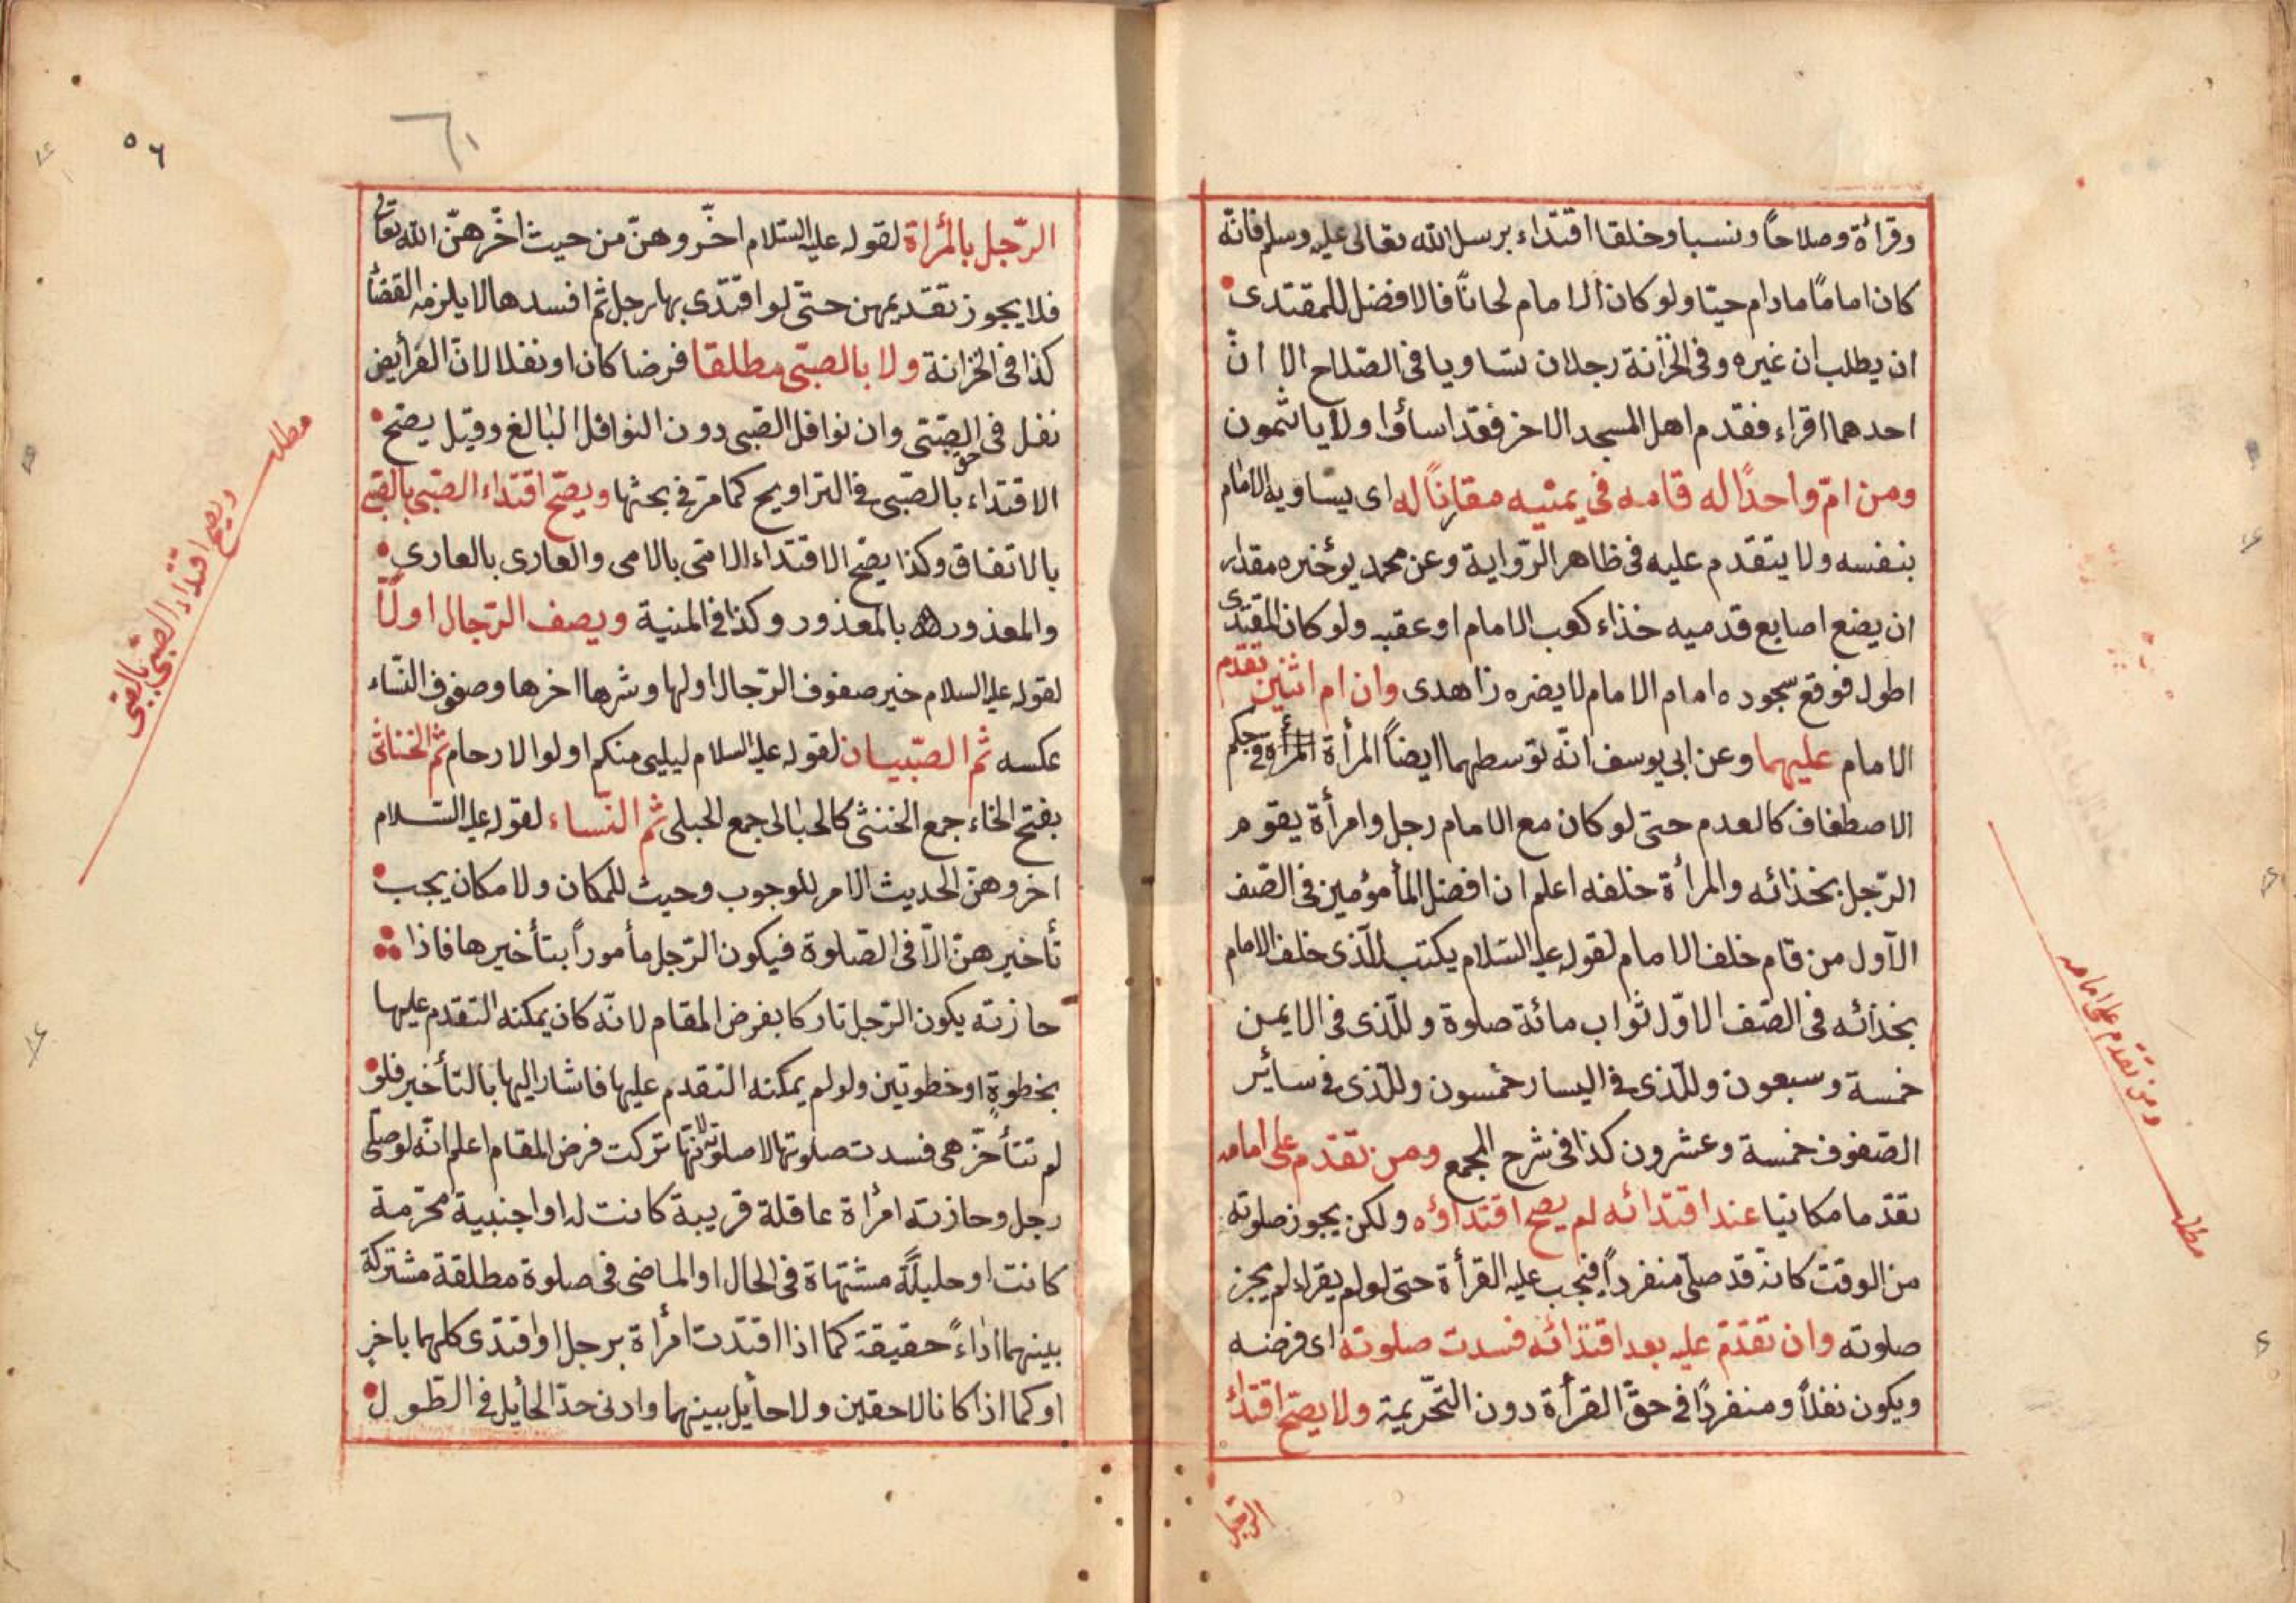 وقرأة وصلاحاً ونسبا وخلقا اقتداء برسل الله تعالى عليه وسلم فانّه
كان اماماً مادام حيّا ولو كان الامام لحاناً فالافضل للمقتدى
ان يطلب ان غيره وفى الخزانة رجلان تساويا فى الصّلاح الا انّ
احدهما اقراء فقدم اهل المسجد الاخر فقد اساؤا ولا ياثمون
ومن امّ واحدًا له قامه في يمنيه مقارناً له اى يساويه الامام
بنفسه ولا يتقدم عليه فى ظاهر الرّواية وعن محمد يؤخره مقدار
ان يضع اصابع قدميه خذاء كعب الامام او عقبه ولو كان المقتدى
اطول فوقع سجوده امام الامام لا يضره زاهدى وان ام اثنين تقدّم
الامام عليهما وعن ابى يوسف انّه توسطهما ايضاً المرأة فى حكم
الاصطفاف كالعدم حتى لو كان مع الامام رجل وامرأة يقوم
الرّجل بخذائه والمرأة خلفه اعلم ان افضل المأمؤمين فى الصّف
الاّول من قام خلف الامام لقوله عليه السّلام يكتب للّذى خلف الامام
بخذائه فى الصّف الاوّل ثواب مائة صلوة وللّذى فى الايمن
خمسة وسبعون وللّذى فى اليسار خمسون وللّذى فى سائر
الصّفوف خمسة وعشرون كذا فى شرح المجمع ومن تقدّم على امامه
تقدّما مكانيا عند اقتدائه لم يصح اقتداؤه ولكن يجوز صلوته
من الوقت كانّه قد صلّى منفرداً فيجب عليه القرأة حتى لو لم يقراء لم يجز
صلوته وان تقدّم عليه بعد اقتدائه فسدت صلوته اى فرضه
ويكون نفلاً ومنفردًا فى حقّ القرأة دون التّحريمة ولا يصحّ اقتداء
الرّجل
ومن تقدّم على امامه
مطلب
٥٦
٦١
الرّجل بالمرأة لقوله عليه السّلام اخّروهنّ من حيث اخّرهنّ الله تعالى
فلا يجوز تقديمهن حتّى لو اقتدى بها رجل ثم افسدها لا يلزمه القضأ
كذا فى الخزانة ولا بالصبّى مطلقا فرضا كان او نفلا لانّ الفرأيض
نفل فى حق الصّبّى وان نوافل الصّبى دون النوافل البالغ وقيل يصّح
الاقتداء بالصّبى فى التراويح كما مرّ فى بحثها ويصحّ اقتداء الصّبى بالصّبى
بالاتفاق وكذا يصّح الاقتداء الامّى بالامى والعارى بالعارى
والمعذور بالمعذور وكذا فى المنية ويصف الرّجال اولاً
لقوله عليه السلام خير صفوف الرّجال اولها وشرها اخرها وصفوف النّساء
عكسه ثم الصّبّيان لقوله عليه السلام ليلينى منكم اولوا الارحام ثم الخناثى
بفتح الخاء جمع الخنثى كالحبالى جمع الحبلى ثم النّساء لقوله عليه السّلام
اخروهنّ الحديث الامر للوجوب وحيث للمكان ولا مكان يجب
تأخيرهنّ الّا فى الصّلوة فيكون الرّجل مأموراً بتأخيرها فاذا
حازته يكون الرّجل تاركا بفرض المقام لانّه كان يمكنه التقدّم عليها
بخطوةٍ او خطوتين ولو لم يمكنه التقدم عليها فاشار اليها بالتأخير فلو
لم تتأخّر هى فسدت صلوتها لا صلوته لانّها تركت فرض المقام اعلم انّه لو صلّى
رجل وحازته امرأة عاقلة قريبة كانت له او اجنبية محرّمة
كانت او حليلةً مشتهاة فى الحال او الماضى فى صلوة مطلقة مشتركة
بينهما اداءً حقيقة كما اذا اقتدت امرأة برجل او اقتدى كلهما باخر
او كما اذا كانا لاحقين ولا حأيل بينهما وادنى حدّ الحأيل فى الطّول
مطلب
ويصح اقتداء الصّبى بالصّبى